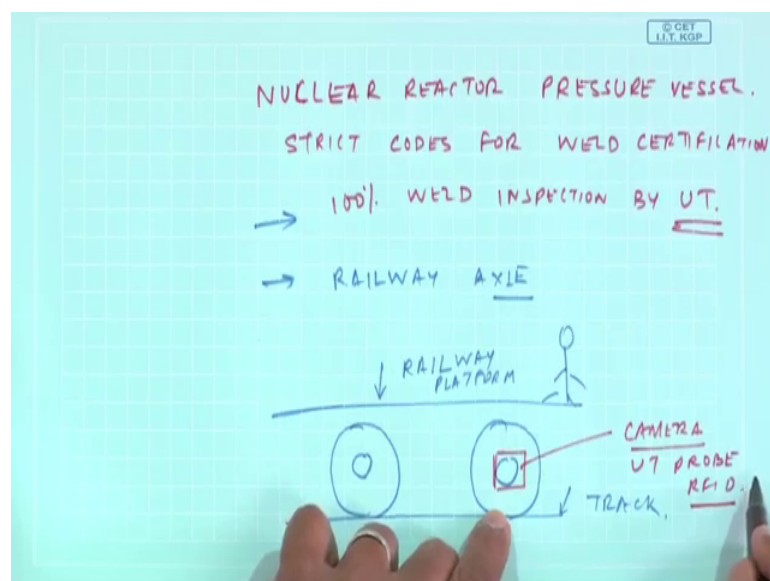 © CET
I.I.T. KGP
NUCLEAR REACTOR PRESSURE VESSEL.
STRICT CODES FOR WELD CERTIFILATION
100%. WELD INSPECTION BY UT.
→ RAILWAY AXLE
RAILWAY
PLATFORM
CAMERA
UT PROBE
RFID.
TRACK.